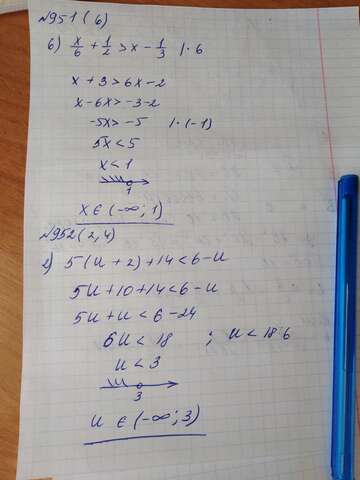 №951(6)
6) x/6 + 1/2 > x - 1/3 | · 6
x + 3 > 6x - 2
x - 6x > -3 - 2
-5x > -5 | · (-1)
5x < 5
x < 1
1
x ∈ (-∞; 1)
№952(2,4)
2) 5(u + 2) + 14 < 6 - u
5u + 10 + 14 < 6 - u
5u + u < 6 - 24
6u < 18 ; u < 18 6
u < 3
3
u ∈ (-∞; 3)